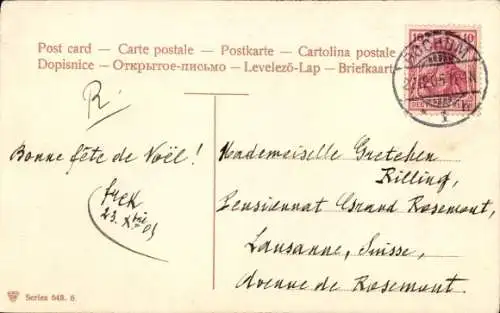 Post card – Carte postale – Postkarte – Cartolina postale
Dopisnice – Открытое-письмо – Levelező-Lap – Briefkaart
10 10
BOCHUM
R.
Bonne fête de Noël!
23. Xbre 05
Mademoiselle Gretchen
Rilling,
Pensionnat Grand Rosemont,
Lausanne, Suisse,
Avenue de Rosemont.
Series 548. 6